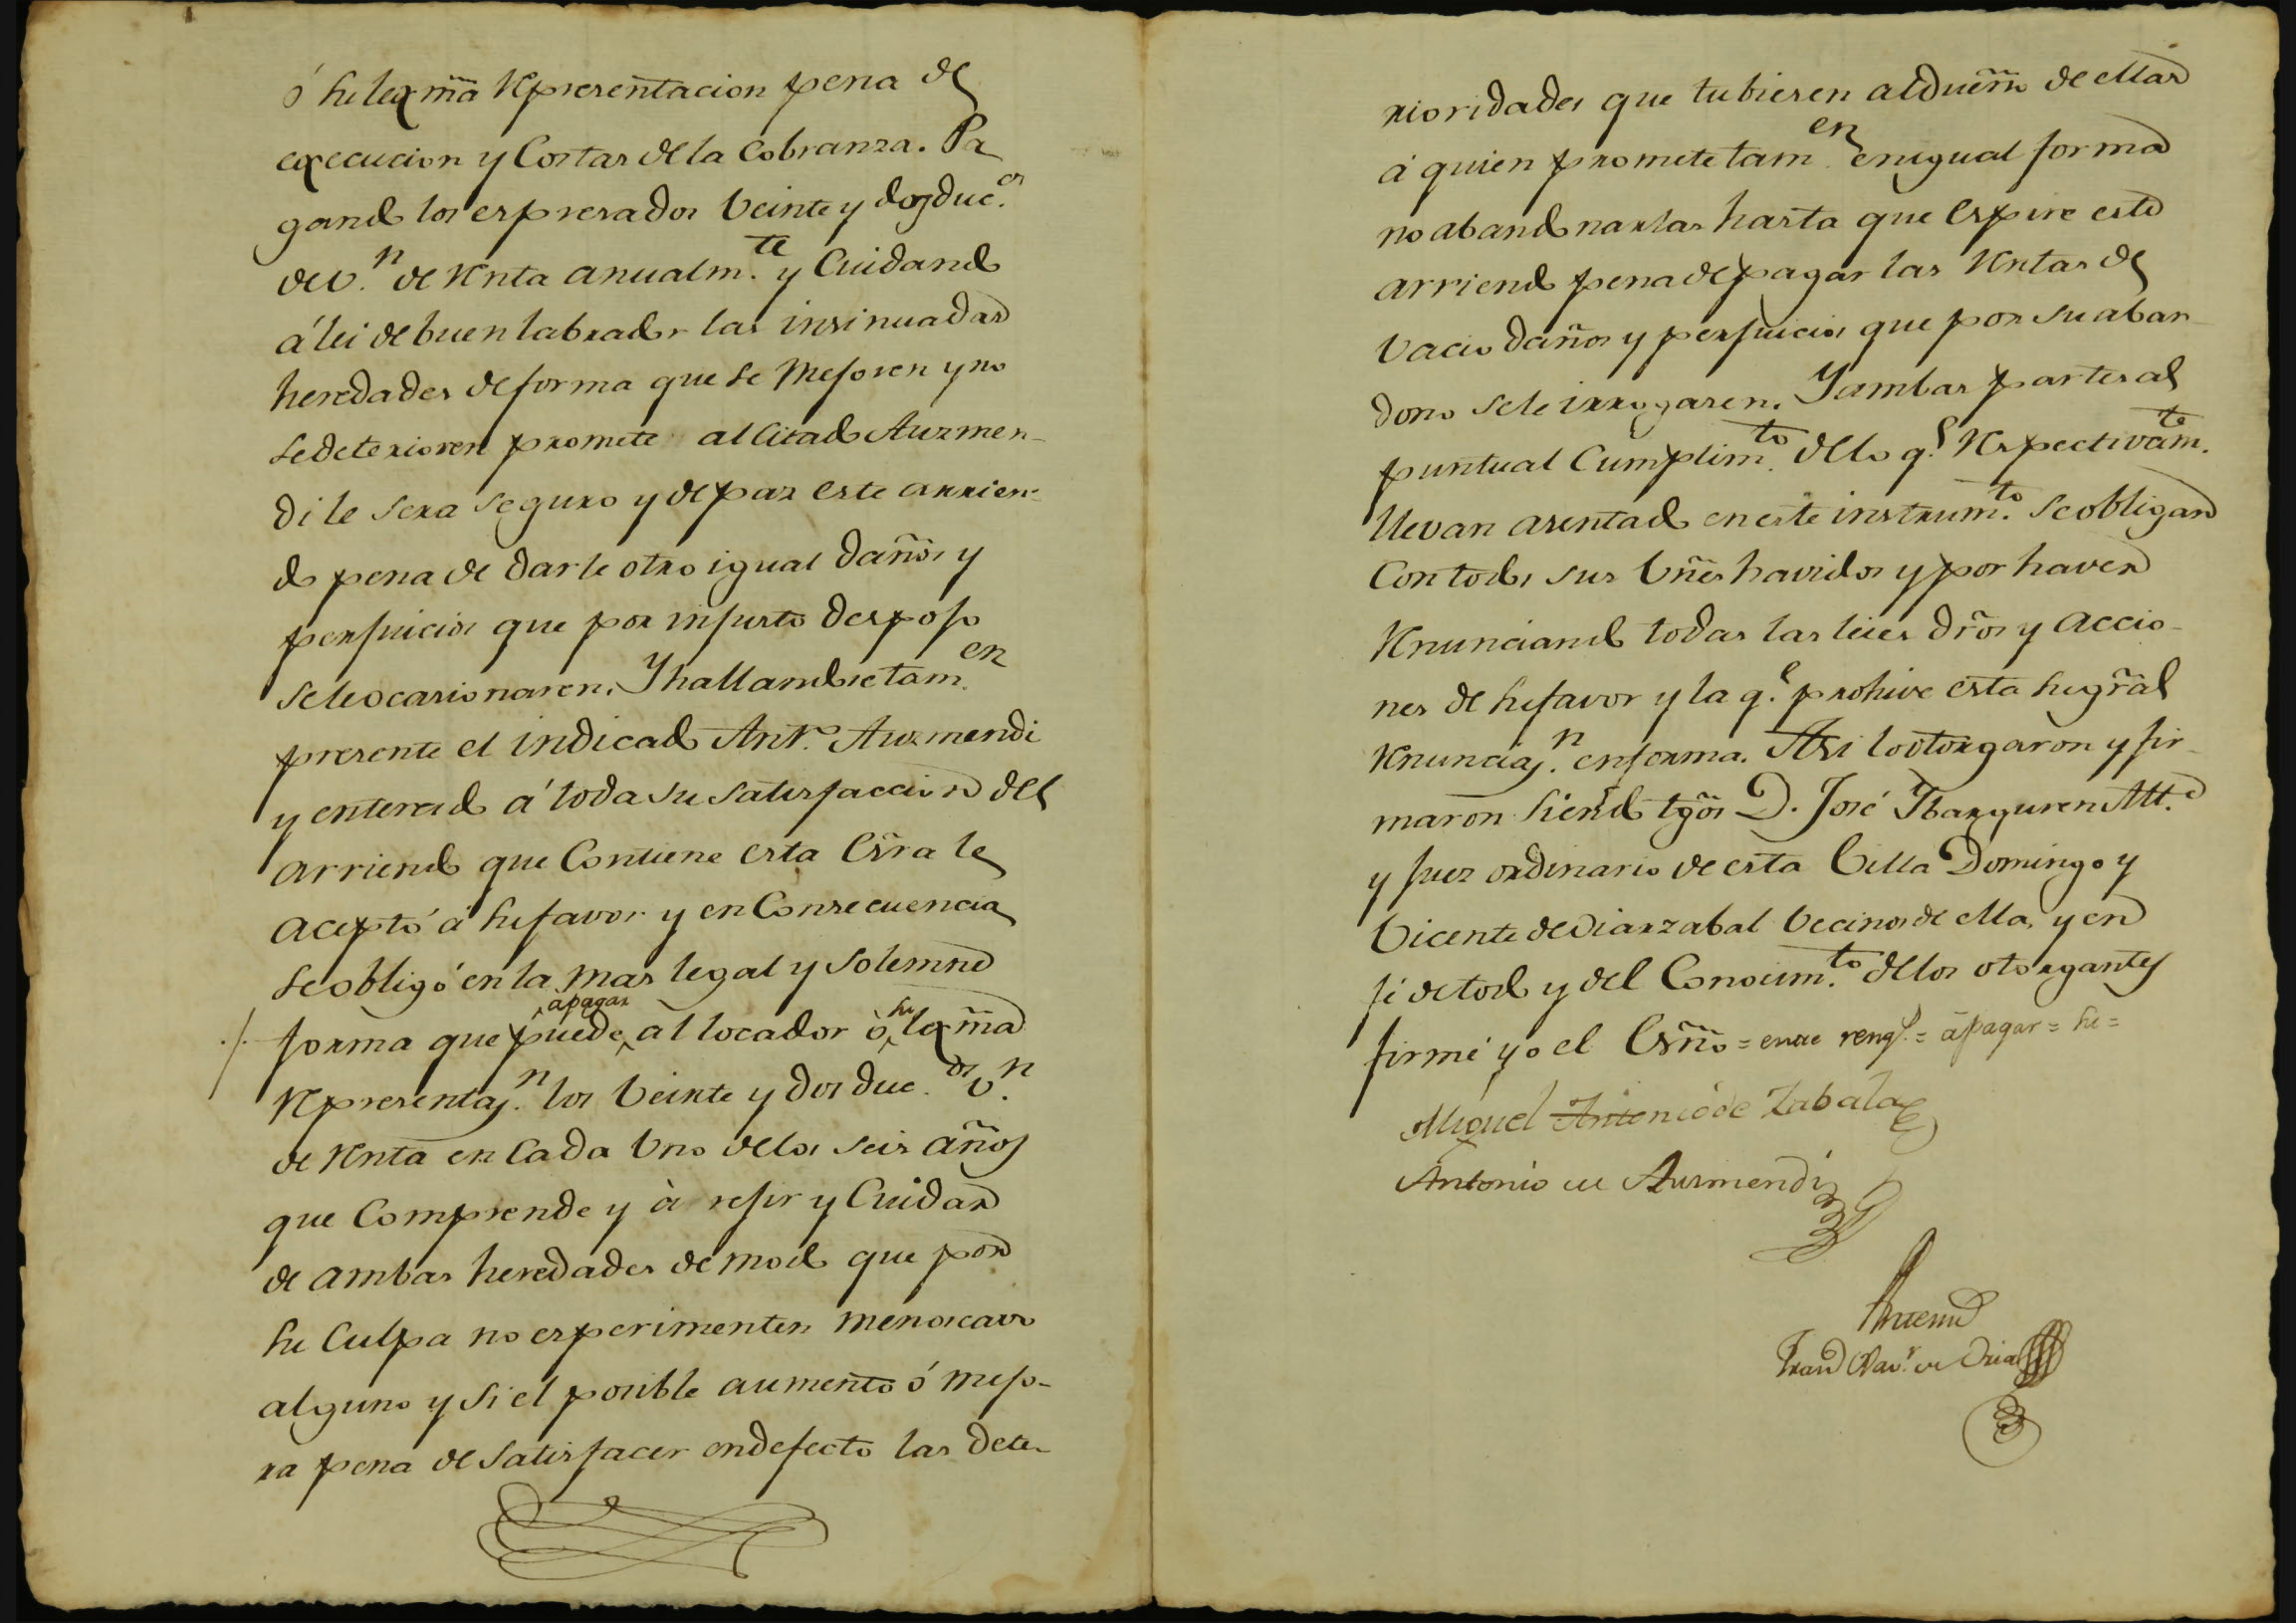 ó su legmã representacion pena de
execucion y Costas de la Cobranza. Pa
gando los espresados Veinte y dos duc.os
de v.n de renta anualm.te y Cuidando
á lei de buen labrador las insinuadas
heredades de forma que se mejoren y no
se deterioren promete al Citado Auzmen-
di le sera seguro y de paz este arrien-
do pena de darle otro igual daños y
perjuicios que por injusto despojo
se le ocasionaren. Y hallandose tam.en
presente el indicado Ant.o Auzmendi
y enterado á toda su satisfaccion del
arriendo que Contiene esta Esrã le
aceptó á su favor y en Consecuencia
se obligó en la mas legal y solemne
forma que puede a pagar al locador ò su legmã
representaz.n los Veinte y dos duc.os v.n
de renta en Cada Uno de los seis años
que Comprende y à rejir y Cuidar
de ambas heredades de modo que por
su Culpa no esperimenten menoscavo
alguno y si el posible aumento ó mejo-
ra pena de satisfacer en defecto las dete-
rioridades que tubiesen al dueño de ellas
á quien promete tam.en en igual forma
no abandonarlas hasta que espire este
arriendo pena de pagar las rentas de
Vacio daños y perjuicios que por su aban-
dono se le irrogaren. Y ambas partes al
puntual Cumplim.to de lo q.e respectivam.te
llevan asentado en este instrum.to se obligan
Con todos sus Vñes havidos y por haver
renunciando todas las leies drõs y accio-
nes de su favor y la q.e prohive esta su grãl
renunciaz.n en forma. Asi lo otorgaron y fir-
maron siendo tgõs D. José Ibarguren Alt.e
y Juez ordinario de esta Villa Domingo y
Vicente de Oiarzabal Vecinos de ella, y en
fé de todo y del Conocim.to de los otorgantes
firmé yo el Esño = entre rengs. = a pagar = su =
Miguel Antonio de Zabala
Antonio de Ausmendi
Antemi